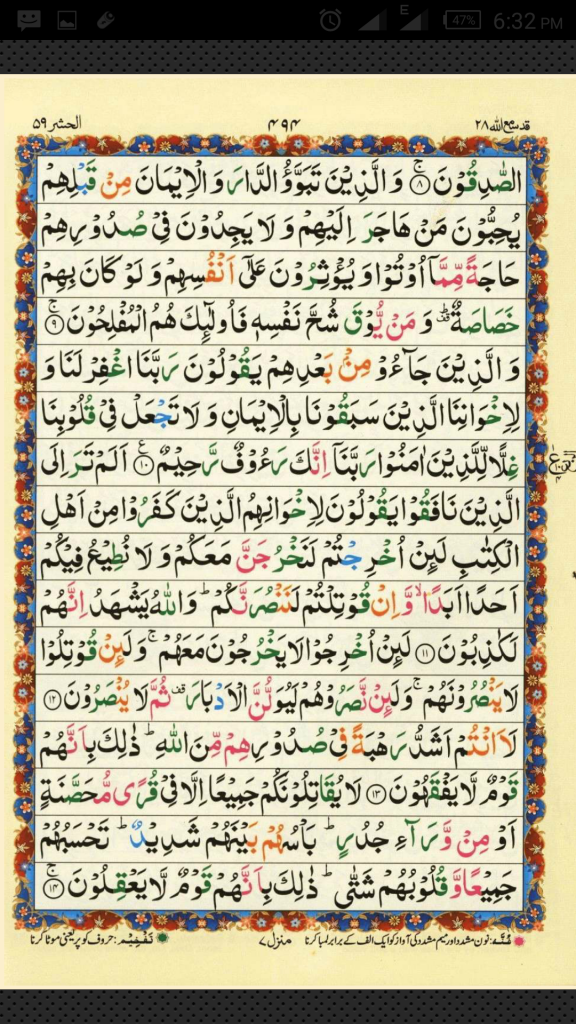 E 47% 6:32 PM
قد سمع الله ٢٨ ٤٩٤ الحشر ٥٩
الصّٰدِقُوْنَ ۚ‏﴿۸﴾ وَ الَّذِيْنَ تَبَوَّؤُ الدَّارَ وَ الْاِيْمَانَ مِنْ قَبْلِهِمْ
يُحِبُّوْنَ مَنْ هَاجَرَ اِلَيْهِمْ وَ لَا يَجِدُوْنَ فِيْ صُدُوْرِهِمْ
حَاجَةً مِّمَّاۤ اُوْتُوْا وَ يُؤْثِرُوْنَ عَلٰۤى اَنْفُسِهِمْ وَ لَوْ كَانَ بِهِمْ
خَصَاصَةٌ ؕ۫ وَ مَنْ يُّوْقَ شُحَّ نَفْسِهٖ فَاُولٰٓئِكَ هُمُ الْمُفْلِحُوْنَ ۚ‏﴿۹﴾
وَ الَّذِيْنَ جَآءُوْ مِنْۢ بَعْدِهِمْ يَقُوْلُوْنَ رَبَّنَا اغْفِرْ لَنَا وَ
لِاِخْوَانِنَا الَّذِيْنَ سَبَقُوْنَا بِالْاِيْمَانِ وَ لَا تَجْعَلْ فِيْ قُلُوْبِنَا
غِلًّا لِّلَّذِيْنَ اٰمَنُوْا رَبَّنَاۤ اِنَّكَ رَءُوْفٌ رَّحِيْمٌ ﴿۱۰﴾ اَلَمْ تَرَ اِلَى
الَّذِيْنَ نَافَقُوْا يَقُوْلُوْنَ لِاِخْوَانِهِمُ الَّذِيْنَ كَفَرُوْا مِنْ اَهْلِ
الْكِتٰبِ لَئِنْ اُخْرِجْتُمْ لَنَخْرُجَنَّ مَعَكُمْ وَ لَا نُطِيْعُ فِيْكُمْ
اَحَدًا اَبَدًا ۙ وَّ اِنْ قُوْتِلْتُمْ لَنَنْصُرَنَّكُمْ ؕ وَ اللّٰهُ يَشْهَدُ اِنَّهُمْ
لَكٰذِبُوْنَ ﴿۱۱﴾ لَئِنْ اُخْرِجُوْا لَا يَخْرُجُوْنَ مَعَهُمْ ۚ وَ لَئِنْ قُوْتِلُوْا
لَا يَنْصُرُوْنَهُمْ ۚ وَ لَئِنْ نَّصَرُوْهُمْ لَيُوَلُّنَّ الْاَدْبَارَ ۫ ثُمَّ لَا يُنْصَرُوْنَ ﴿۱۲﴾
لَاَانْتُمْ اَشَدُّ رَهْبَةً فِيْ صُدُوْرِهِمْ مِّنَ اللّٰهِ ؕ ذٰلِكَ بِاَنَّهُمْ
قَوْمٌ لَّا يَفْقَهُوْنَ ﴿۱۳﴾ لَا يُقَاتِلُوْنَكُمْ جَمِيْعًا اِلَّا فِيْ قُرًى مُّحَصَّنَةٍ
اَوْ مِنْ وَّرَآءِ جُدُرٍ ؕ بَاْسُهُمْ بَيْنَهُمْ شَدِيْدٌ ؕ تَحْسَبُهُمْ
جَمِيْعًا وَّ قُلُوْبُهُمْ شَتّٰى ؕ ذٰلِكَ بِاَنَّهُمْ قَوْمٌ لَّا يَعْقِلُوْنَ ۚ‏﴿۱۴﴾
غُنَّہ: نون مشدد اور میم مشدد کی آواز کو ایک الف کے برابر لمبا کرنا منزل ۷ تفخیم: حروف کو پُر یعنی موٹا کرنا